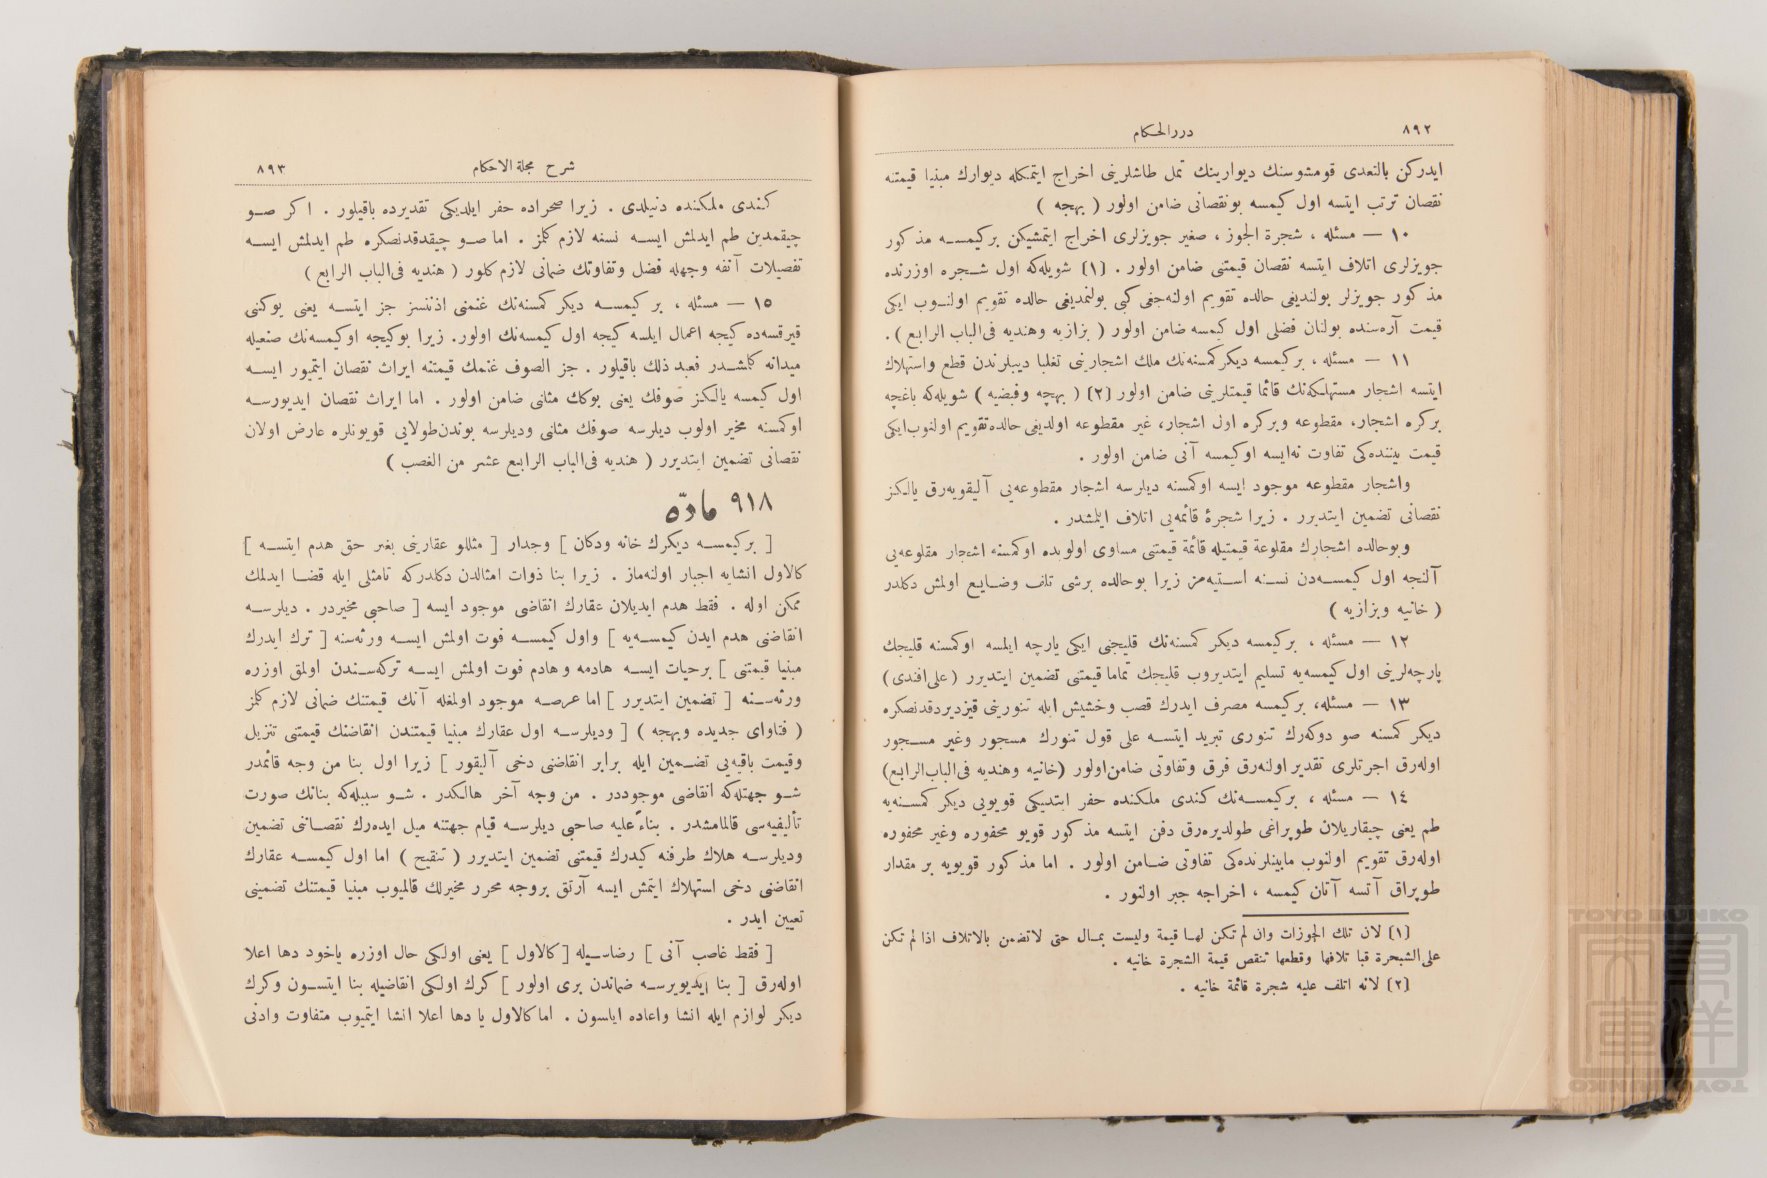 ٨٩٢
دررالحكام
ايدركن بالتعدى قومشوسنك ديوارينك تمل طاشلرينى اخراج ايتمكله ديوارك مبنيا قيمتنه
نقصان ترتب ايتسه اول كيمسه بونقصانى ضامن اولور ( بهجه )
١٠ — مسئله ، شجرة الجوز ، صغير جويزلرى اخراج ايتمشيكن بركيمسه مذكور
جويزلرى اتلاف ايتسه نقصان قيمتنى ضامن اولور . [١] شويله‌كه اول شجره اوزرنده
مذكور جويزلر بولنديغى حالده تقويم اولنه‌جغى كبى بولنمديغى حالده تقويم اولنوب ايكى
قيمت آره‌سنده بولنان فضلى اول كيمسه ضامن اولور ( بزازيه وهنديه فى‌الباب الرابع ) .
١١ — مسئله ، بركيمسه ديكر كمسنه‌نك ملك اشجارينى تغلبا ديبلرندن قطع واستهلاك
ايتسه اشجار مستهلكه‌نك قائما قيمتلرينى ضامن اولور [٢] ( بهجه وفيضيه ) شويله‌كه باغچه
بركره اشجار، مقطوعه وبركره اول اشجار، غير مقطوعه اولديغى حالده تقويم اولنوب ايكى
قيمت بيننده‌كى تفاوت نه‌ايسه اوكيمسه آنى ضامن اولور .
واشجار مقطوعه موجود ايسه اوكمسنه ديلرسه اشجار مقطوعه‌يى آليقويه‌رق يالكز
نقصانى تضمين ايتديرر . زيرا شجرۀ قائمه‌يى اتلاف ايلمشدر .
وبوحالده اشجارك مقلوعة قيمتيله قائمة قيمتى مساوى اولوبده اوكمسنه اشجار مقلوعه‌يى
آلنجه اول كيمسه‌دن نسنه استيه‌من زيرا بوحالده برشى تلف وضايع اولمش دكلدر
( خانيه وبزازيه )
١٢ — مسئله ، بركيمسه ديكر كمسنه‌نك قليجنى ايكى پارچه ايلسه اوكمسنه قليجك
پارچه‌لرينى اول كيمسه‌يه تسليم ايتديروب قليجك تماما قيمتنى تضمين ايتديرر ( على‌افندى )
١٣ — مسئله، بركيمسه مصرف ايدرك قصب وخشيش ايله تنورينى قيزديردقدنصكره
ديكر كمسنه صو دوكه‌رك تنورى تبريد ايتسه على قول تنورك مسجور وغير مسجور
اوله‌رق اجرتلرى تقدير اولنه‌رق فرق وتفاوتى ضامن‌اولور (خانيه وهنديه فى‌الباب‌الرابع)
١٤ — مسئله ، بركيمسه‌نك كندى ملكنده حفر ايتديكى قويويى ديكر كمسنه‌يه
طم يعنى چيقاريلان طوپراغى طولديره‌رق دفن ايتسه مذكور قويو محفوره وغير محفوره
اوله‌رق تقويم اولنوب مابينلرنده‌كى تفاوتى ضامن اولور . اما مذكور قويويه بر مقدار
طوپراق آتسه آتان كيمسه ، اخراجه جبر اولنور .
[١] لان تلك الجوزات وان لم تكن لها قيمة وليست بمال حتى لاتضمن بالاتلاف اذا لم تكن
على‌الشجرة قبا تلافها وقطعها تنقص قيمة الشجرة خانيه .
[٢] لانه اتلف عليه شجرة قائمة خانيه .
شرح مجلة الاحكام
٨٩٣
كندى ملكنده دنيلدى . زيرا صحراده حفر ايلديكى تقديرده باقيلور . اكر صو
چيقمدين طم ايدلمش ايسه نسنه لازم كلمز . اما صو چيقدقدنصكره طم ايدلمش ايسه
تفصيلات آنفه وجهله فضل وتفاوتك ضمانى لازم كلور ( هنديه فى‌الباب الرابع )
١٥ — مسئله ، بركيمسه ديكر كمسنه‌نك غنمنى اذنسز جز ايتسه يعنى يوكنى
قيرقسه‌ده كيجه اعمال ايلسه كيجه اول كيمسه‌نك اولور. زيرا بوكيجه اوكيمسه‌نك صنعيله
ميدانه كلمشدر فعبد ذلك باقيلور . جز الصوف غنمك قيمتنه ايراث نقصان ايتميور ايسه
اول كيمسه يالكز صوفك يعنى يوكك مثلنى ضامن اولور . اما ايراث نقصان ايديورسه
اوكمسنه مخير اولوب ديلرسه صوفك مثلنى وديلرسه بوندن‌طولايى قويونلره عارض اولان
نقصانى تضمين ايتديرر ( هنديه فى‌الباب الرابع عشر من الغصب )
٩١٨ مادّه
[ بركيمسه ديكرك خانه ودكان ] وجدار [ مثللو عقارينى بغير حق هدم ايتسه ]
كالاول انشايه اجبار اولنه‌ماز . زيرا بنا ذوات امثالدن دكلدركه تامثلى ايله قضا ايدلمك
ممكن اوله . فقط هدم ايديلان عقارك انقاضى موجود ايسه [ صاحبى مخيردر . ديلرسه
انقاضنى هدم ايدن كيمسه‌يه ] واول كيمسه فوت اولمش ايسه ورثه‌سنه [ ترك ايدرك
مبنيا قيمتنى ] برحيات ايسه هادمه وهادم فوت اولمش ايسه تركه‌سندن اولمق اوزره
ورثه‌سنه [ تضمين ايتديرر ] اما عرصه موجود اولمغله آنك قيمتنك ضمانى لازم كلمز
( فتاواى جديده وبهجه ) [ وديلرسه اول عقارك مبنيا قيمتندن انقاضنك قيمتنى تنزيل
وقيمت باقيه‌يى تضمين ايله برابر انقاضنى دخى آليقور ] زيرا اول بنا من وجه قائمدر
شو جهتله‌كه انقاضى موجوددر . من وجه آخر هالكدر . شو سببله‌كه بنانك صورت
تأليفيه‌سى قالمامشدر . بناءً عليه صاحبى ديلرسه قيام جهتنه ميل ايده‌رك نقصاننى تضمين
وديلرسه هلاك طرفنه كيدرك قيمتنى تضمين ايتديرر ( تنقيح ) اما اول كيمسه عقارك
انقاضنى دخى استهلاك ايتمش ايسه آرتق بروجه محرر مخيرلك قالميوب مبنيا قيمتنك تضمينى
تعيين ايدر .
[ فقط غاصب آنى ] رضاسيله [ كالاول ] يعنى اولكى حال اوزره ياخود دها اعلا
اوله‌رق [ بنا ايديويرسه ضماندن برى اولور ] كرك اولكى انقاضيله بنا ايتسون وكرك
ديكر لوازم ايله انشا واعاده ايلسون . اماكالاول يا دها اعلا انشا ايتميوب متفاوت وادنى
TOYO BUNKO
東洋文庫
TOYO BUNKO